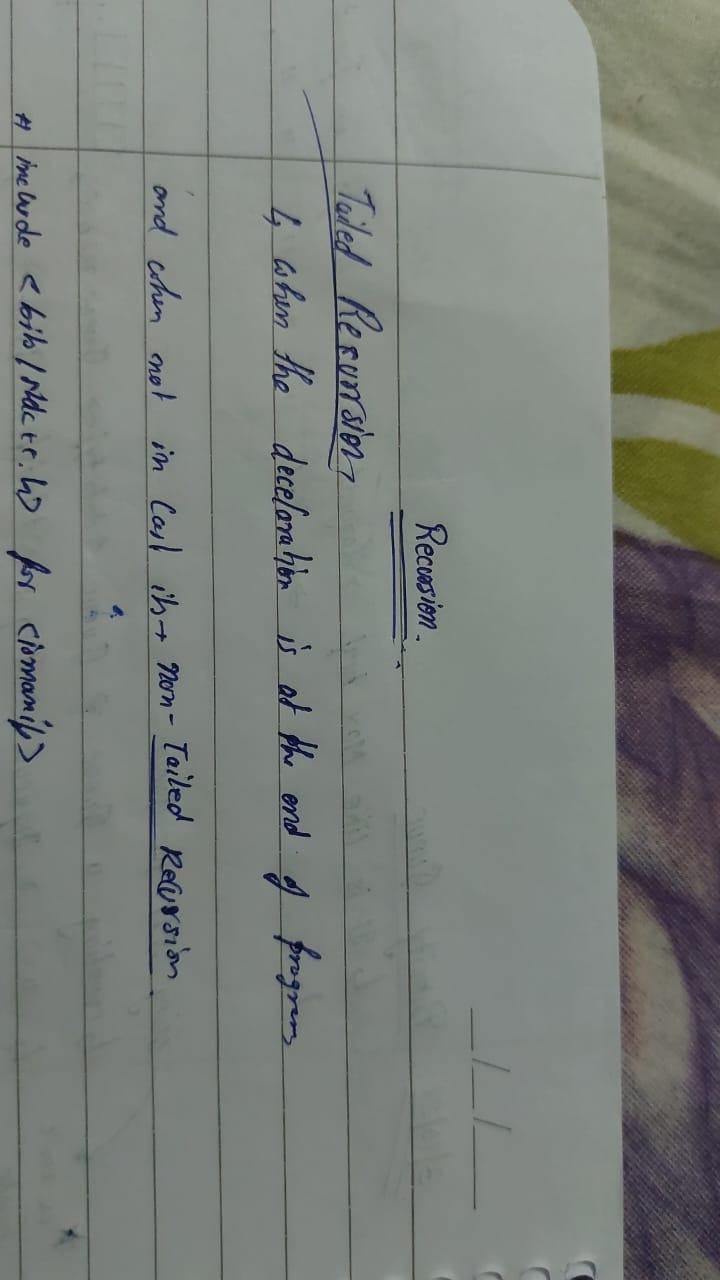 Recursion.
Tailed Recursion
↳ when the decelaration is at the end of program
and when not in last its → non-Tailed Recursion
# include <bits/stdc++.h> for <iomanip>